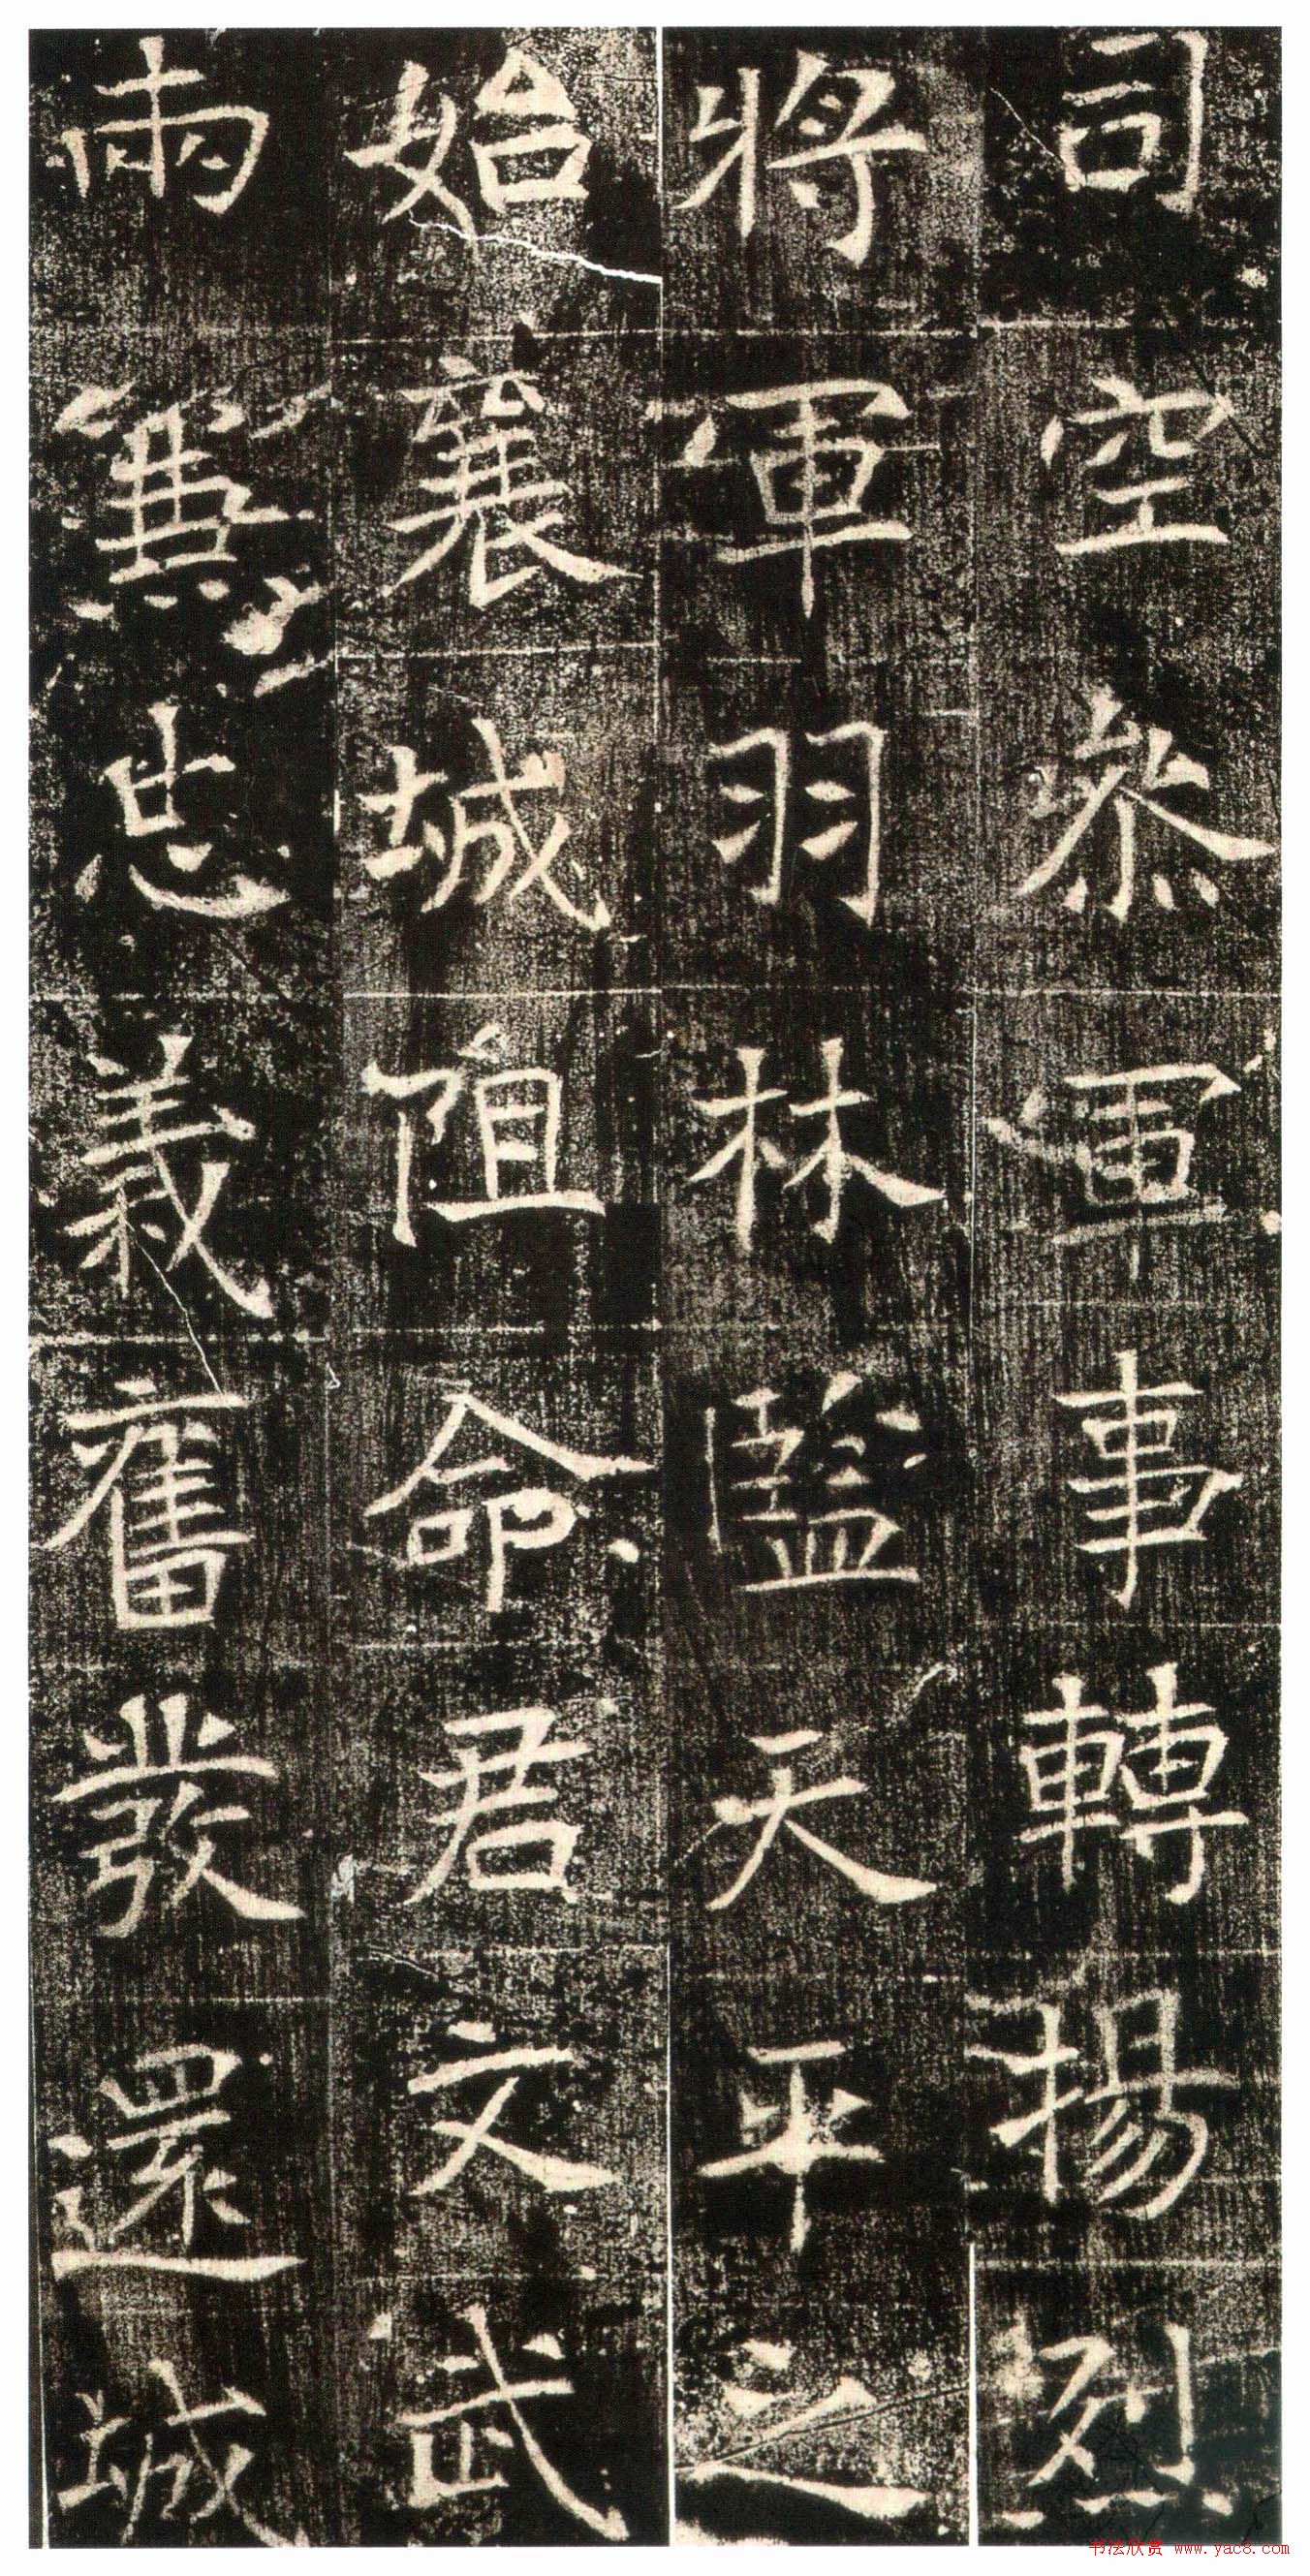 司空参軍事轉揚烈
將軍羽林監天平之
始襄城阻命君文武
兩兼忠義奮發還城
书法欣赏 www.yac8.com